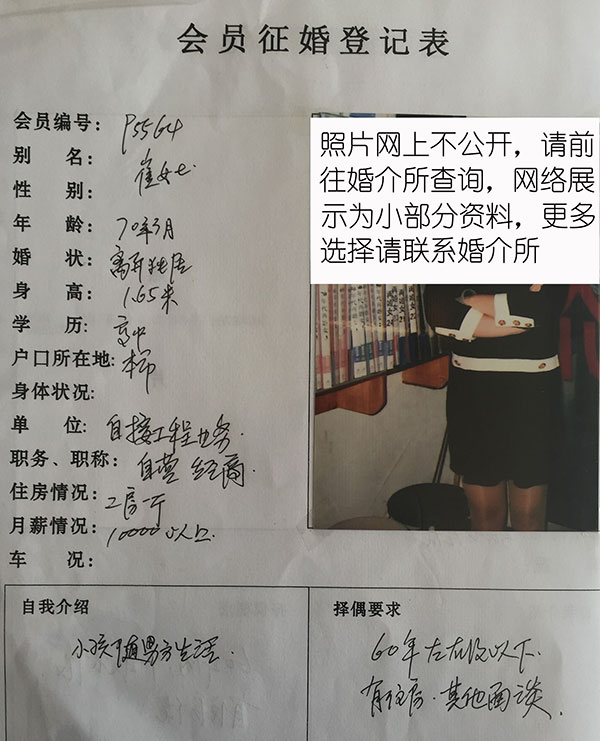 会员征婚登记表
会员编号: P5564
别 名: 崔女士
性 别:
年 龄: 70年3月
婚 状: 离异独居
身 高: 1.65米
学 历: 高中
户口所在地: 本市
身体状况:
单 位: 自接工程业务
职务、职称: 自营 经商
住房情况: 二房一厅
月薪情况: 10000以上
车 况:
照片网上不公开，请前
往婚介所查询，网络展
示为小部分资料，更多
选择请联系婚介所
自我介绍
小孩随男方生活.
择偶要求
60年左右及以下.
有住房.其他面谈